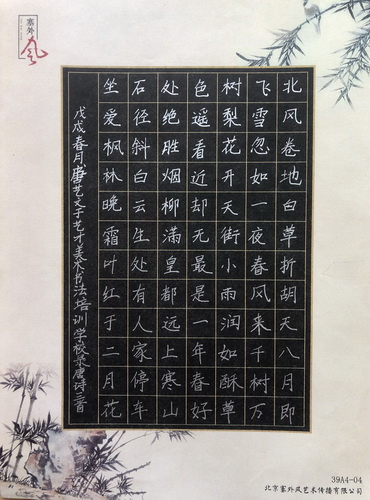 塞外
风
北风卷地白草折胡天八月即
飞雪忽如一夜春风来千树万
树梨花开天街小雨润如酥草
色遥看近却无最是一年春好
处绝胜烟柳满皇都远上寒山
石径斜白云生处有人家停车
坐爱枫林晚霜叶红于二月花
戊戌春月唐艺文于艺才美术书法培训学校录唐诗三首
39A4-04
北京塞外风艺术传播有限公司